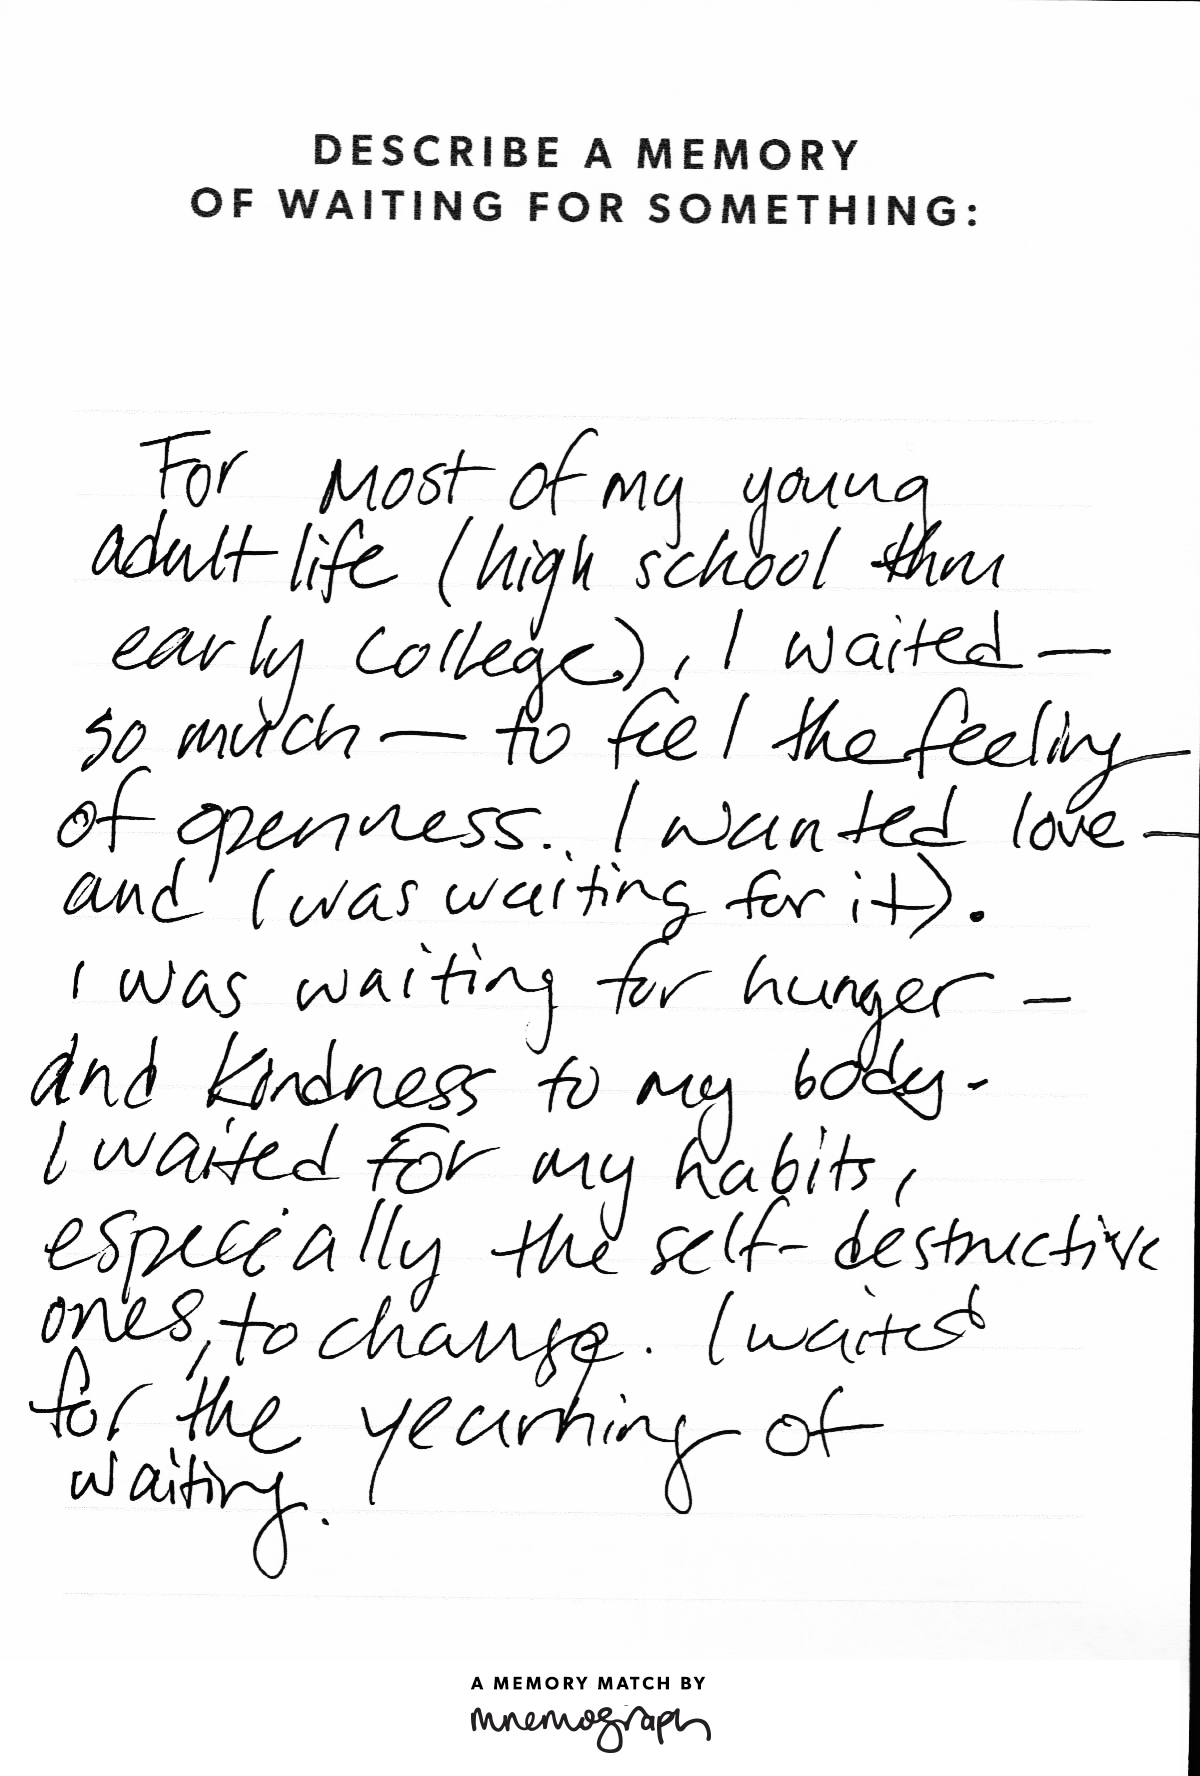 DESCRIBE A MEMORY
OF WAITING FOR SOMETHING:
For most of my young
adult life (high school thru
early college), I waited —
so much — to feel the feeling
of openness. I wanted love —
and (was waiting for it).
I was waiting for hunger —
and kindness to my body.
I waited for my habits,
especially the self-destructive
ones, to change. I waited
for the yearning of
waiting.
A MEMORY MATCH BY
mnemograph